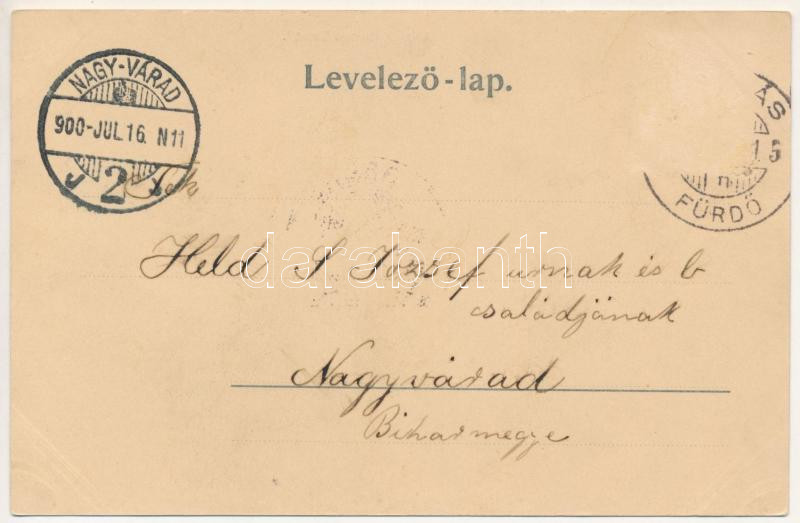 Levelező-lap.
NAGY-VÁRAD
900-JUL.16. N11
2
ÁS
15
FÜRDŐ
Held S József urnak és b
családjának
Nagyvárad
Biharmegye
darabanth